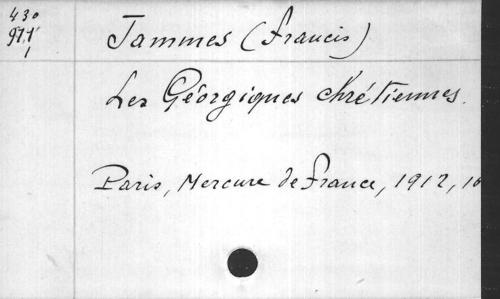 430
971
1
Jammes (Francis)
Les Géorgiques chrétiennes.
Paris, Mercure de France, 1912, 16